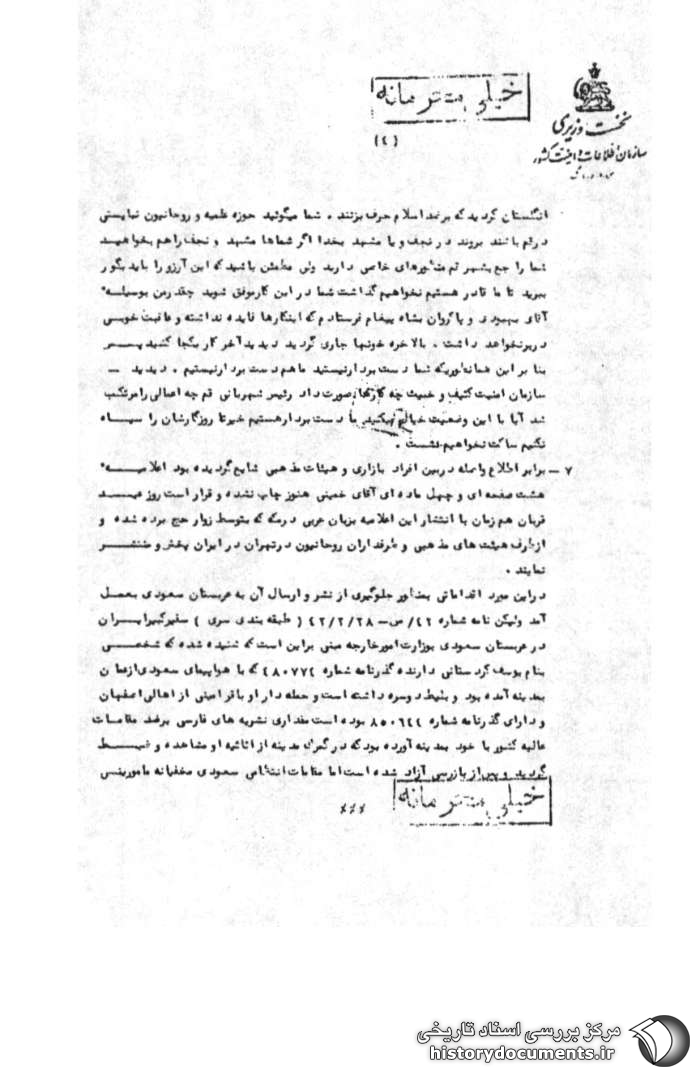 خیلی محرمانه
نخست وزیری
سازمان اطلاعات و امنیت کشور
(٤)
انگلستان کردید که برضد اسلام حرف بزنند ، شما میگوئید حوزه علمیه و روحانیون نبایستی
در قم باشند بروند در نجف و یا مشهد بخدا اگر شماها مشهد و نجف را هم بخواهید
شما را جع بشهر قم منظورهای خاصی دارید ولی مطمئن باشید که این آرزو را باید بگور
ببرید تا ما قادر هستیم نخواهیم گذاشت شما در این کار موفق شوید چقدر من بوسیله
آقای بهبودی و پاکروان بشاه پیغام فرستادم که اینکارها فایده نداشته و عاقبت خوبی
در بر نخواهد داشت ، بالاخره خونها جاری گردید دیدید آخر کار بکجا کشید پس
بنا بر این همانطوریکه شما دست بردار نیستید ما هم دست بردار نیستیم ، دیدید –
سازمان امنیت کثیف و خبیث چه کارها صورت داد رئیس شهربانی قم چه اعمالی را مرتکب
شد آیا با این وضعیت خیال میکنید ما دست بردار هستیم خیر تا روزگارشان را سیاه
نکنیم ساکت نخواهیم نشست .
٧ – برابر اطلاع واصله در بین افراد بازاری و هیئات مذهبی شایع گردیده بود اعلامیه
هشت صفحه ای و چهل ماده ای آقای خمینی هنوز چاپ نشده و قرار است روز عید
قربان هم زمان با انتشار این اعلامیه بزبان عربی در مکه که بتوسط زوار حج برده شده و
از طرف هیئت های مذهبی و طرفداران روحانیون در تهران در ایران پخش و منتشر
نمایند .
در این مورد اقداماتی بمنظور جلوگیری از نشر و ارسال آن به عربستان سعودی بعمل
آمد ولیکن نامه شماره ٤٢/س – ٤٢/٢/٢٨ ( طبقه بندی سری ) سفیر کبیر ایران
در عربستان سعودی بوزارت امور خارجه مبنی بر این است که شنیده شده که شخصی
بنام یوسف کردستانی دارنده گذرنامه شماره که با هواپیمای سعودی از عمان
بمدینه آمده بود و بلیط دوسره داشته است و حمله دار او باقر امینی از اهالی اصفهان
و دارای گذرنامه شماره بوده است مقداری نشریه های فارسی برضد مقامات
عالیه کشور با خود بمدینه آورده بود که در گمرک مدینه از اثاثیه او مشاهده و ضبط
گردید و پس از بازرسی آزاد شده است اما مقامات انتظامی سعودی مخفیانه مامورینی
خیلی محرمانه
×××
مرکز بررسی اسناد تاریخی
historydocuments.ir